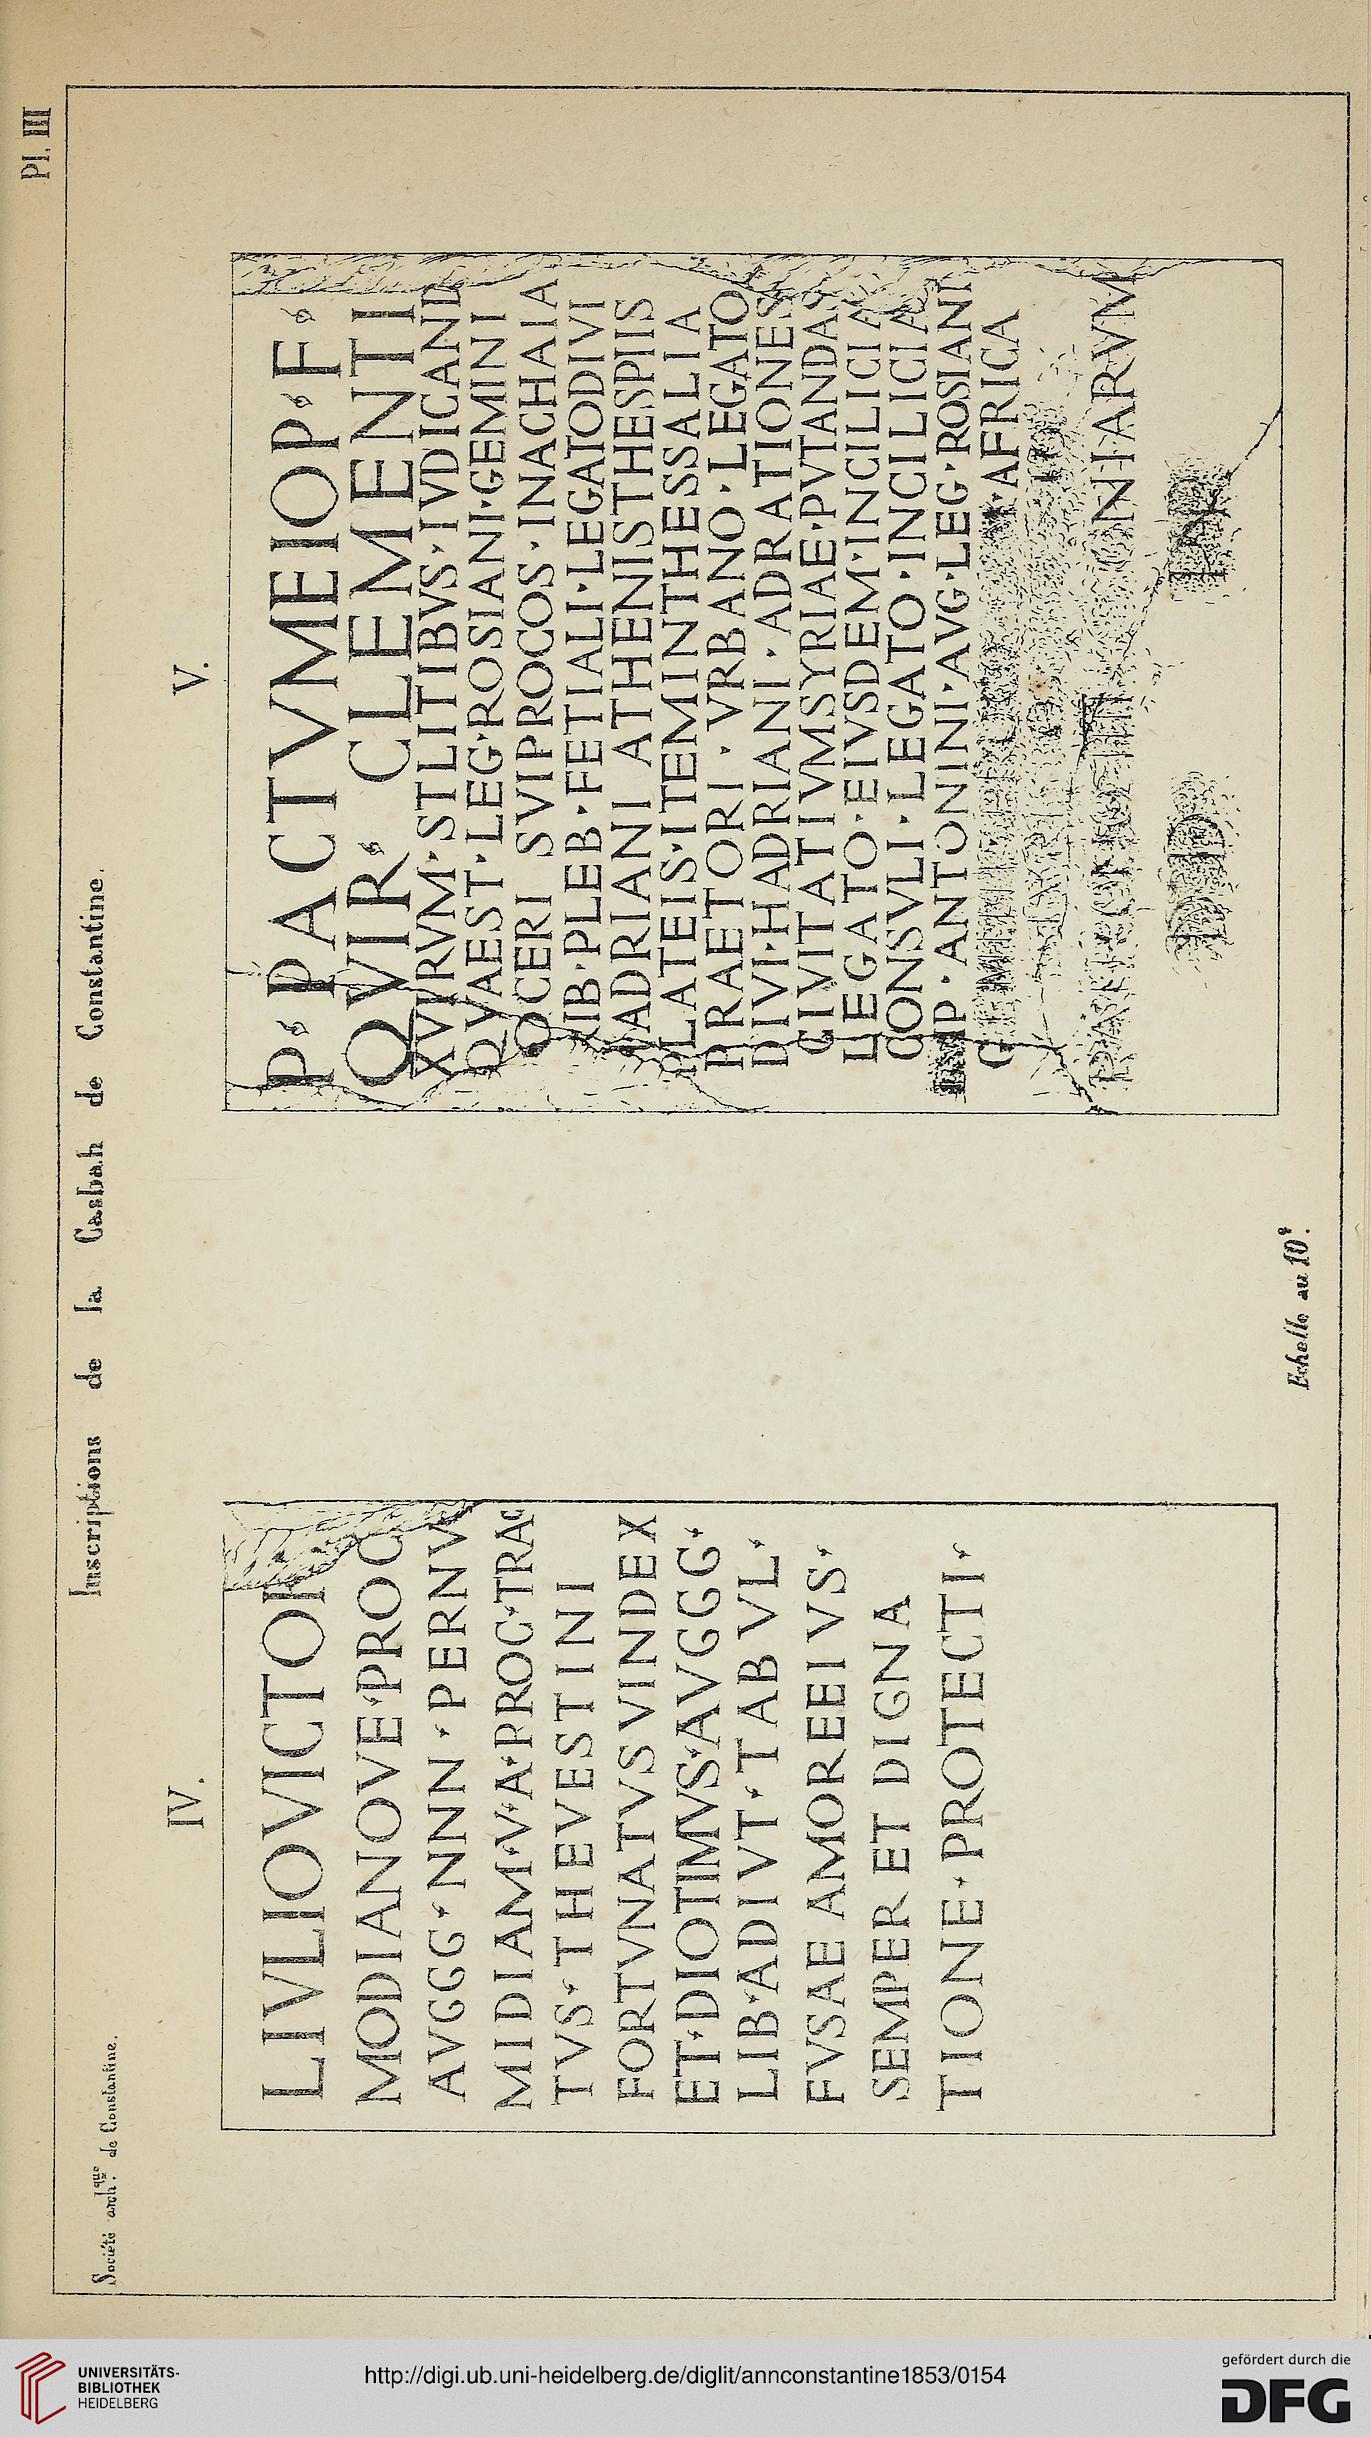 Pl. III
Société arch.que de Constantine.
Inscriptions de la Casbah de Constantine.
IV.
LIVLIOVICTOR
MODIANOVE·PROC
AVGGG·NNN·PERNV
MIDIAM·V·A·PROC·TRAC
TVS·THEVESTINI
FORTVNATVSVINDEX
ET·DIOTIMVS·AVGGG·
LIB·ADIVT·TABVL·
FVSAEAMOREEIVS·
SEMPER ET DIGNA
TIONE·PROTECTI·
V.
P PACTVMEIOP F
QVIR CLEMENTI
XVIRVM·STLITIBVS·IVDICAND
QVAEST·LEG·ROSIANI·GEMINI
SOCERI SVIPROCOS·INACHAIA
TRIB·PLEB·FETIALI·LEGATODIVI
HADRIANI ATHENISTHESPIIS
PLATEIS·ITEMINTHESSALIA
PRAETORI·VRBANO·LEGATO
DIVI·HADRIANI·ADRATIONES
CIVITATIVMSYRIAE·PVTANDAS
LEGATO·EIVSDEM·INCILICIA
CONSVLI·LEGATO·INCILICIA
IMP·ANTONINI·AVG·LEG·ROSIANI
GEMINI AFRICA
NIARVM
DD
Echelle au 10e.
UNIVERSITÄTS-
BIBLIOTHEK
HEIDELBERG
http://digi.ub.uni-heidelberg.de/diglit/annconstantine1853/0154
gefördert durch die
DFG